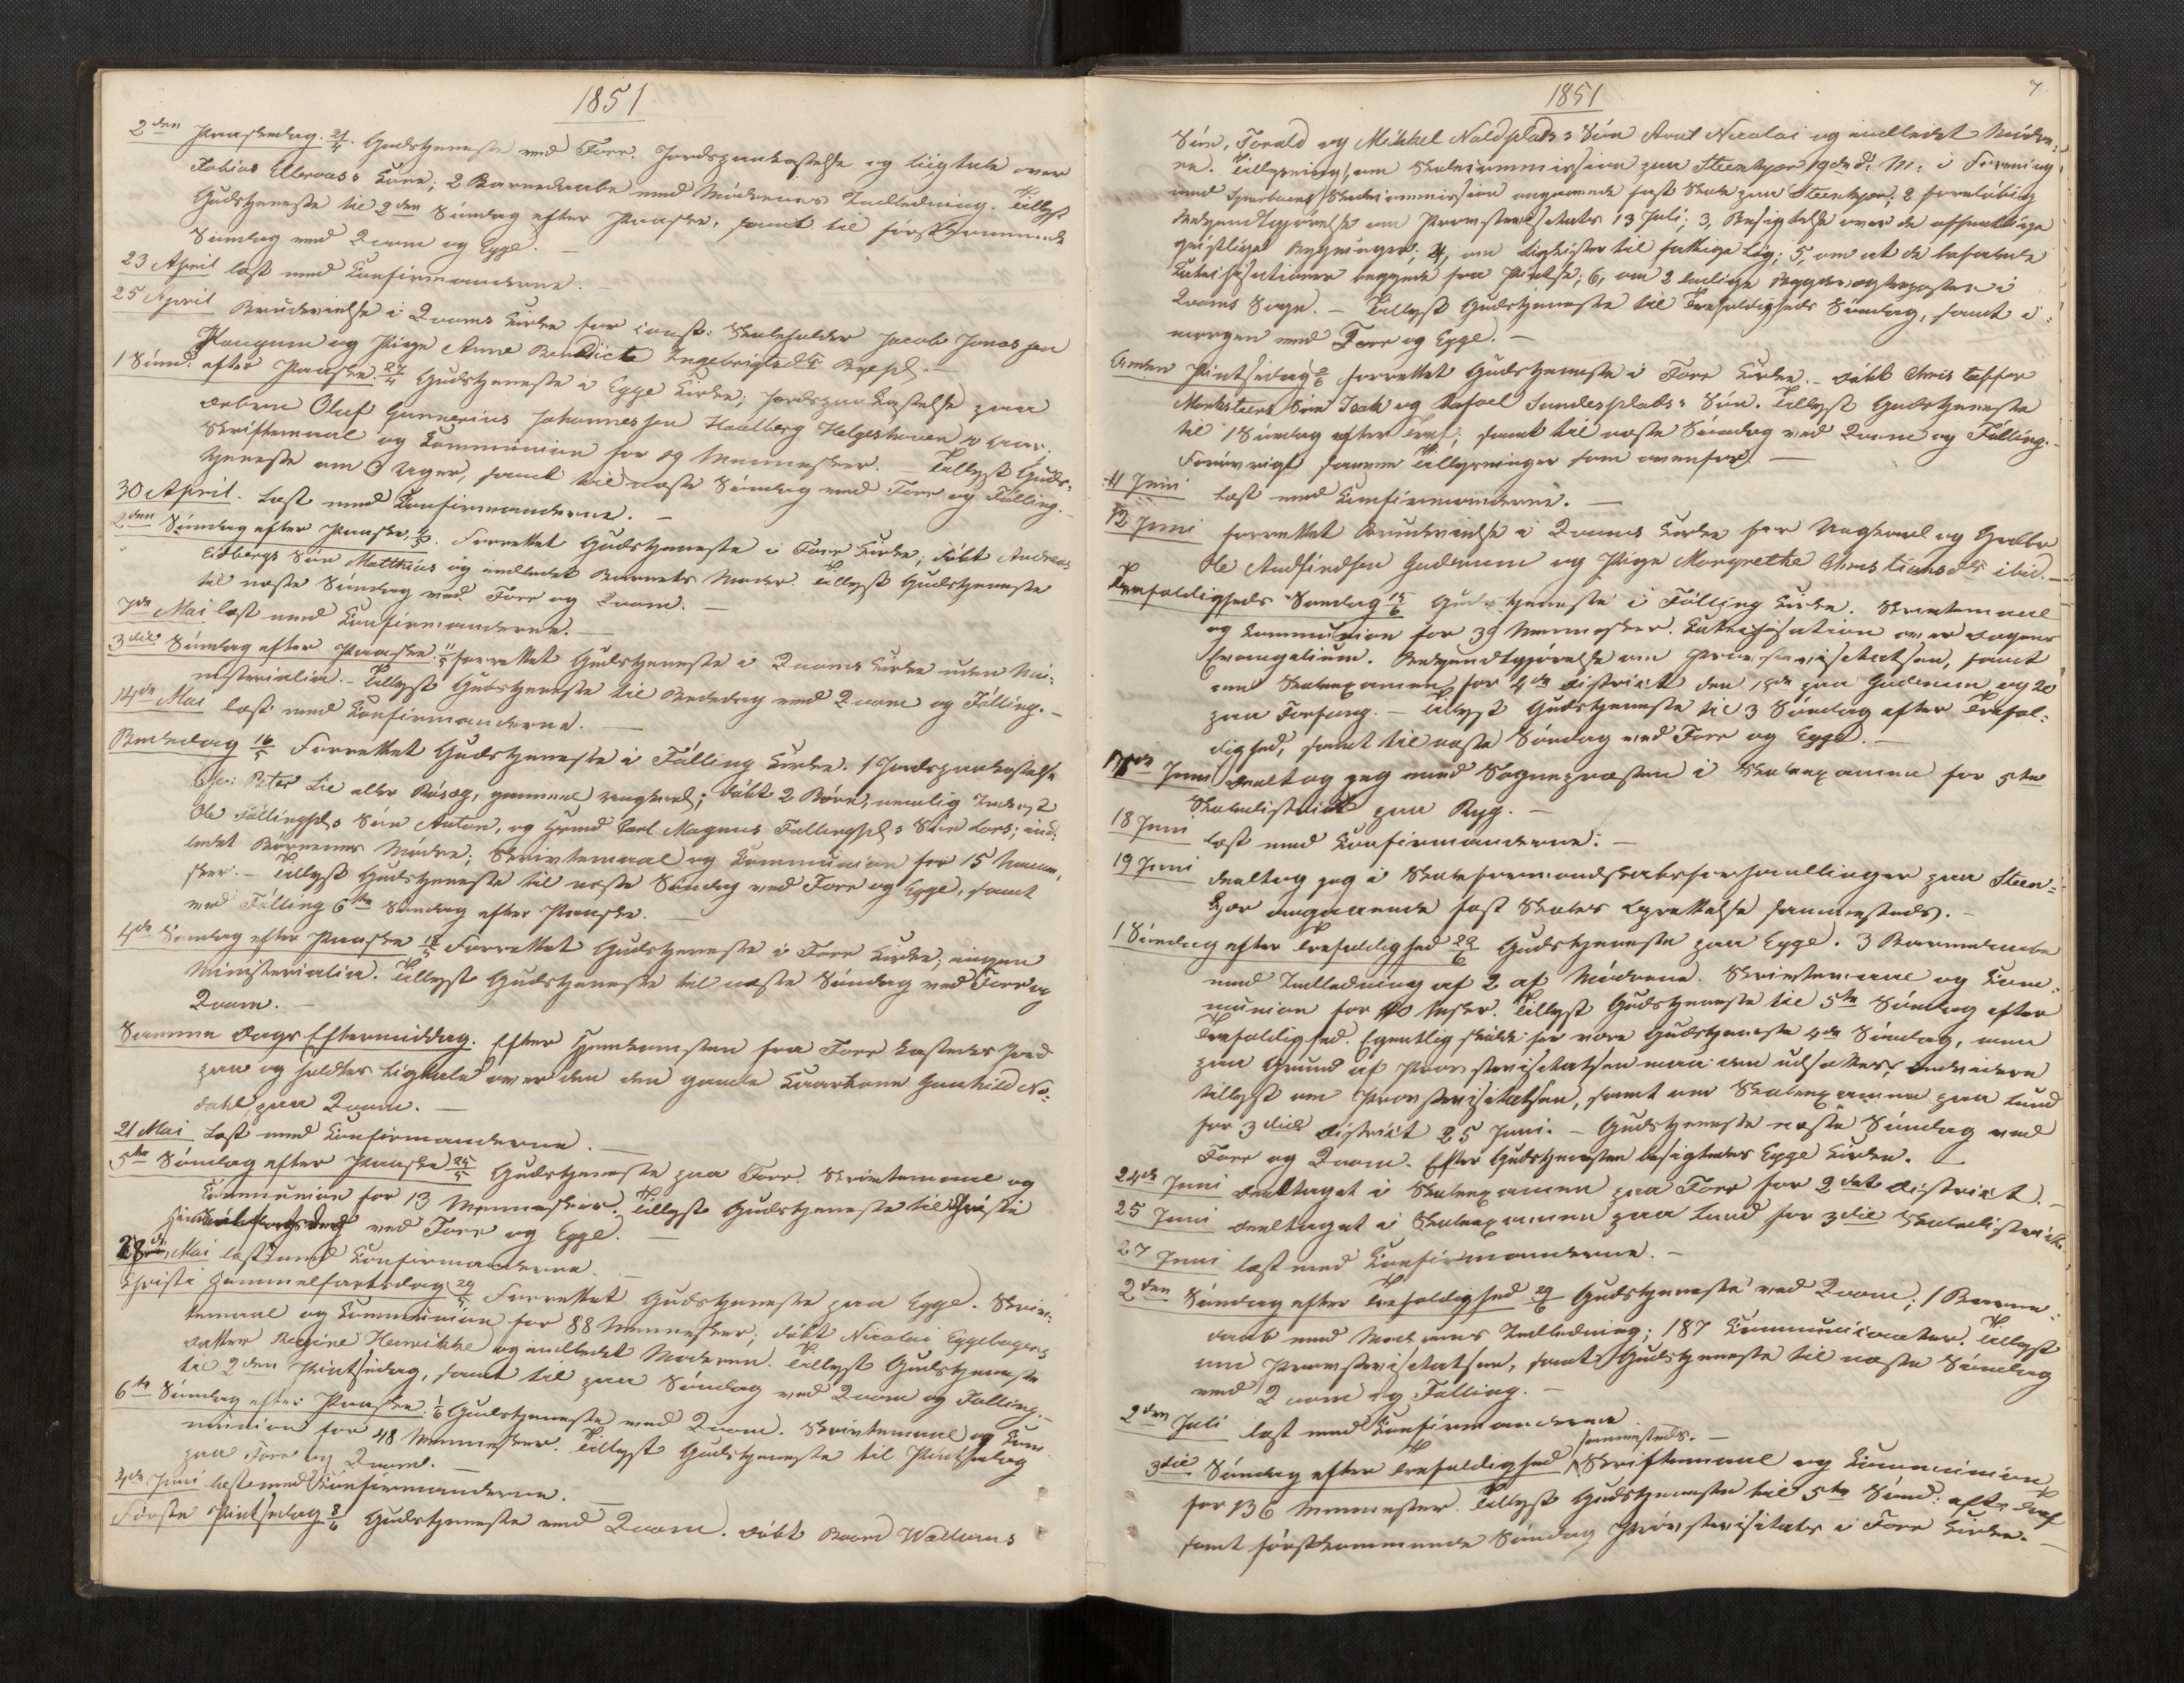 1851
2den Paaskedag. 21/4. Gudstjeneste ved Foer. Jordspaakastelse og Liigtale over
Tobias Elbroas's Kone; 2 Barnedaabe med Mødrenes Indledning. Tillyst
Gudstjeneste til 2den Søndag efter Paaske, samt til førstkommende
Søndag ved Qvam og Egge. –
23 April læst med Konfirmanderne. –
25 April Brudevielse i Qvams Kirke for const: Skoleholder Jacob Jonassen
Haugum og Pige Anne Benedicte Ingebrigtsdtr –
1 Sønd: efter Paaske. 27/4 Gudstjeneste i Egge Kirke; Jordspaakastelse paa
Oluf Gunnerius Johannessen Haalberg
Skriftemaal og Kommunion for Mennesker. – Tillyst Guds-
tjeneste om 3 Uger, samt til næste Søndag ved Foer og Følling. –
30 April. Læst med Konfirmanderne. –
2den Søndag efter Paaske, 4/5. Forrettet Gudstjeneste i Foer Kirke; døbt Andreas
Eidbergs Søn Matthias og indledet Barnets Moder. Tillyst Gudstjeneste
til næste Søndag ved Foer og Qvam. –
7de Mai læst med Konfirmanderne. –
3die Søndag efter Paaske. 11/5 forrettet Gudstjeneste i Qvams Kirke uden Mi-
nisterialia. – Tillyst Gudstjeneste til Bededag ved Qvam og Følling. –
14de Mai læst med Konfirmanderne. –
Bededag 16/5 Forrettet Gudstjeneste i Følling Kirke. 1 Jordspaakastelse
Peter Lie eller gammel døbt 2 Børn, nemlig
Ole Føllingpl.s Søn Anton, og Carl Magnus Føllingpl.s Søn Lars; ind-
ledet Børnenes Mødre; Skriftemaal og Kommunion for 15 Menne-
sker. – Tillyst Gudstjeneste til næste Søndag ved Foer og Egge, samt
ved Følling 6te Søndag efter Paaske. –
4de Søndag efter Paaske 18/5 Forrettet Gudstjeneste i Foer Kirke; ingen
Ministerialia. Tillyst Gudstjeneste til næste Søndag ved Foer og
Qvam. –
Samme Dags Eftermiddag. Efter Hjemkomsten fra Foer kastedes Jord
paa og holdtes Ligtale over den gamle Kaarkone Gunhild No-
dahl paa Qvam. –
21 Mai Læst med Konfirmanderne. –
5te Søndag efter Paaske 25/5 Gudstjeneste paa Foer. Skriftemaal og
Kommunion for 13 Mennesker. Tillyst Gudstjeneste til Christi
Himmelfartsdag ved Foer og Egge. –
28de Mai læst med Konfirmanderne. –
Christi Himmelfartsdag 29/5 Forrettet Gudstjeneste paa Egge. Skrif-
temaal og Kommunion for 88 Mennesker; døbt Nicolai Eggebagens
Datter Regine Henrikke og indledet Moderen. Tillyst Gudstjeneste
til 2den Pintsedag, samt til paa Søndag ved Qvam og Følling. –
6te Søndag efter Paaske. 1/6 Gudstjeneste ved Qvam. Skriftemaal og Kom-
munion for 48 Mennesker. Tillyst Gudstjeneste til Pintsedag
paa Foer og Qvam. –
4de Juni læst med Konfirmanderne. –
Første Pintsedag 8/6 Gudstjeneste ved Qvam. Døbt Baard Wallums
7
1851
Søn, Torald og Mikkel Noldplads's Søn Arnt Nicolai og indledet Mødre-
ne. Tillysning, om Skolecommission paa Steenkjer 19de d: M: i Forening
med Sparboens Skolecommission angaaende fast Skole paa Steenkjer; 2 foreløbig
Bekjendtgjørelse om Provstevisitats 13 Juli; 3, Besigtelse over de offentlige
geistlige Bygninger; 4, om Ligkister til fattige Lig; 5, om at de befalede
Katechisationer begynde fra Pintse; 6, om 2 ledige i
Qvams Sogn. – Tillyst Gudstjeneste til Trefoldigheds Søndag, samt i-
morgen ved Foer og Egge. –
Anden Pintsedag 9/6 forrettet Gudstjeneste i Foer Kirke. – Døbt Christopher
Søn Isak og Rafael Sundesplads's Søn. Tillyst Gudstjeneste
til 1 Søndag efter Tref; samt til næste Søndag ved Qvam og Følling. –
Forøvrigt samme Tillysninger som ovenfor. –
11 Juni læst med Konfirmanderne. –
12 Juni forrettet Brudevielse i Qvams Kirke for Ungkarl og
Ole Andfindsen Gudmun og Pige Margrethe Christiansdtr ibid. –
Trefoldigheds Søndag 15/6 Gudstjeneste i Følling Kirke. Skriftemaal
og Kommunion for 39 Mennesker. Katechisation over Dagens
Evangelium. Bekjendtgjørelse om Provstevisitatsen, samt
om Skoleexamen for 4de District den paa Gudmun og 20
paa – Tillyst Gudstjeneste til 3 Søndag efter Trefol-
dighed, samt til næste Søndag ved Foer og Egge. –
17de Juni deeltog jeg med Sognepræsten i Skoleexamen for 5te
Skoledistrict paa Ryg. –
18 Juni læst med Konfirmanderne. –
19 Juni deeltog jeg i Skoleformandskabsforhandlinger paa Steen-
kjær angaaende fast Skoles Oprettelse sammesteds. –
1 Søndag efter Trefoldighed 22/6 Gudstjeneste paa Egge. 3 Barnedaabe
med Indledning af 2 af Mødrene. Skriftemaal og Kom-
munion for Tillyst Gudstjeneste til 5te Søndag efter
Trefoldighed. Egentlig skulde her være Gudstjeneste 4de Søndag, men
paa Grund af Provstevisitatsen maa den udsættes; endvidere
tillyst om Provstevisitatsen, samt om Skoleexamen paa Lund
for 3die District 25 Juni. – Gudstjeneste næste Søndag ved
Foer og Qvam. Efter Gudstjenesten besigtedes Egge Kirke. –
24de Juni deeltaget i Skoleexamen paa Foer for 2det District. –
25 Juni deeltaget i Skoleexamen paa Lund for 3die Skoledistrict.
27 Juni læst med Konfirmanderne. –
2den Søndag efter Trefoldighed 29/6 Gudstjeneste ved Qvam; 1 Barne-
daab med Moderens Indledning; 187 Kommunicanter. Tillyst
om Provstevisitatsen, samt Gudstjeneste til næste Søndag
ved Qvam og Følling. –
2den Juli læst med Konfirmanderne sammesteds. –
3die Søndag efter Trefoldighed Skriftemaal og Kommunion
for 136 Mennesker. Tillyst Gudstjeneste til 5te Sønd: efter Tref
samt førstkommende Søndag Provstevisitats i Foer Kirke. –